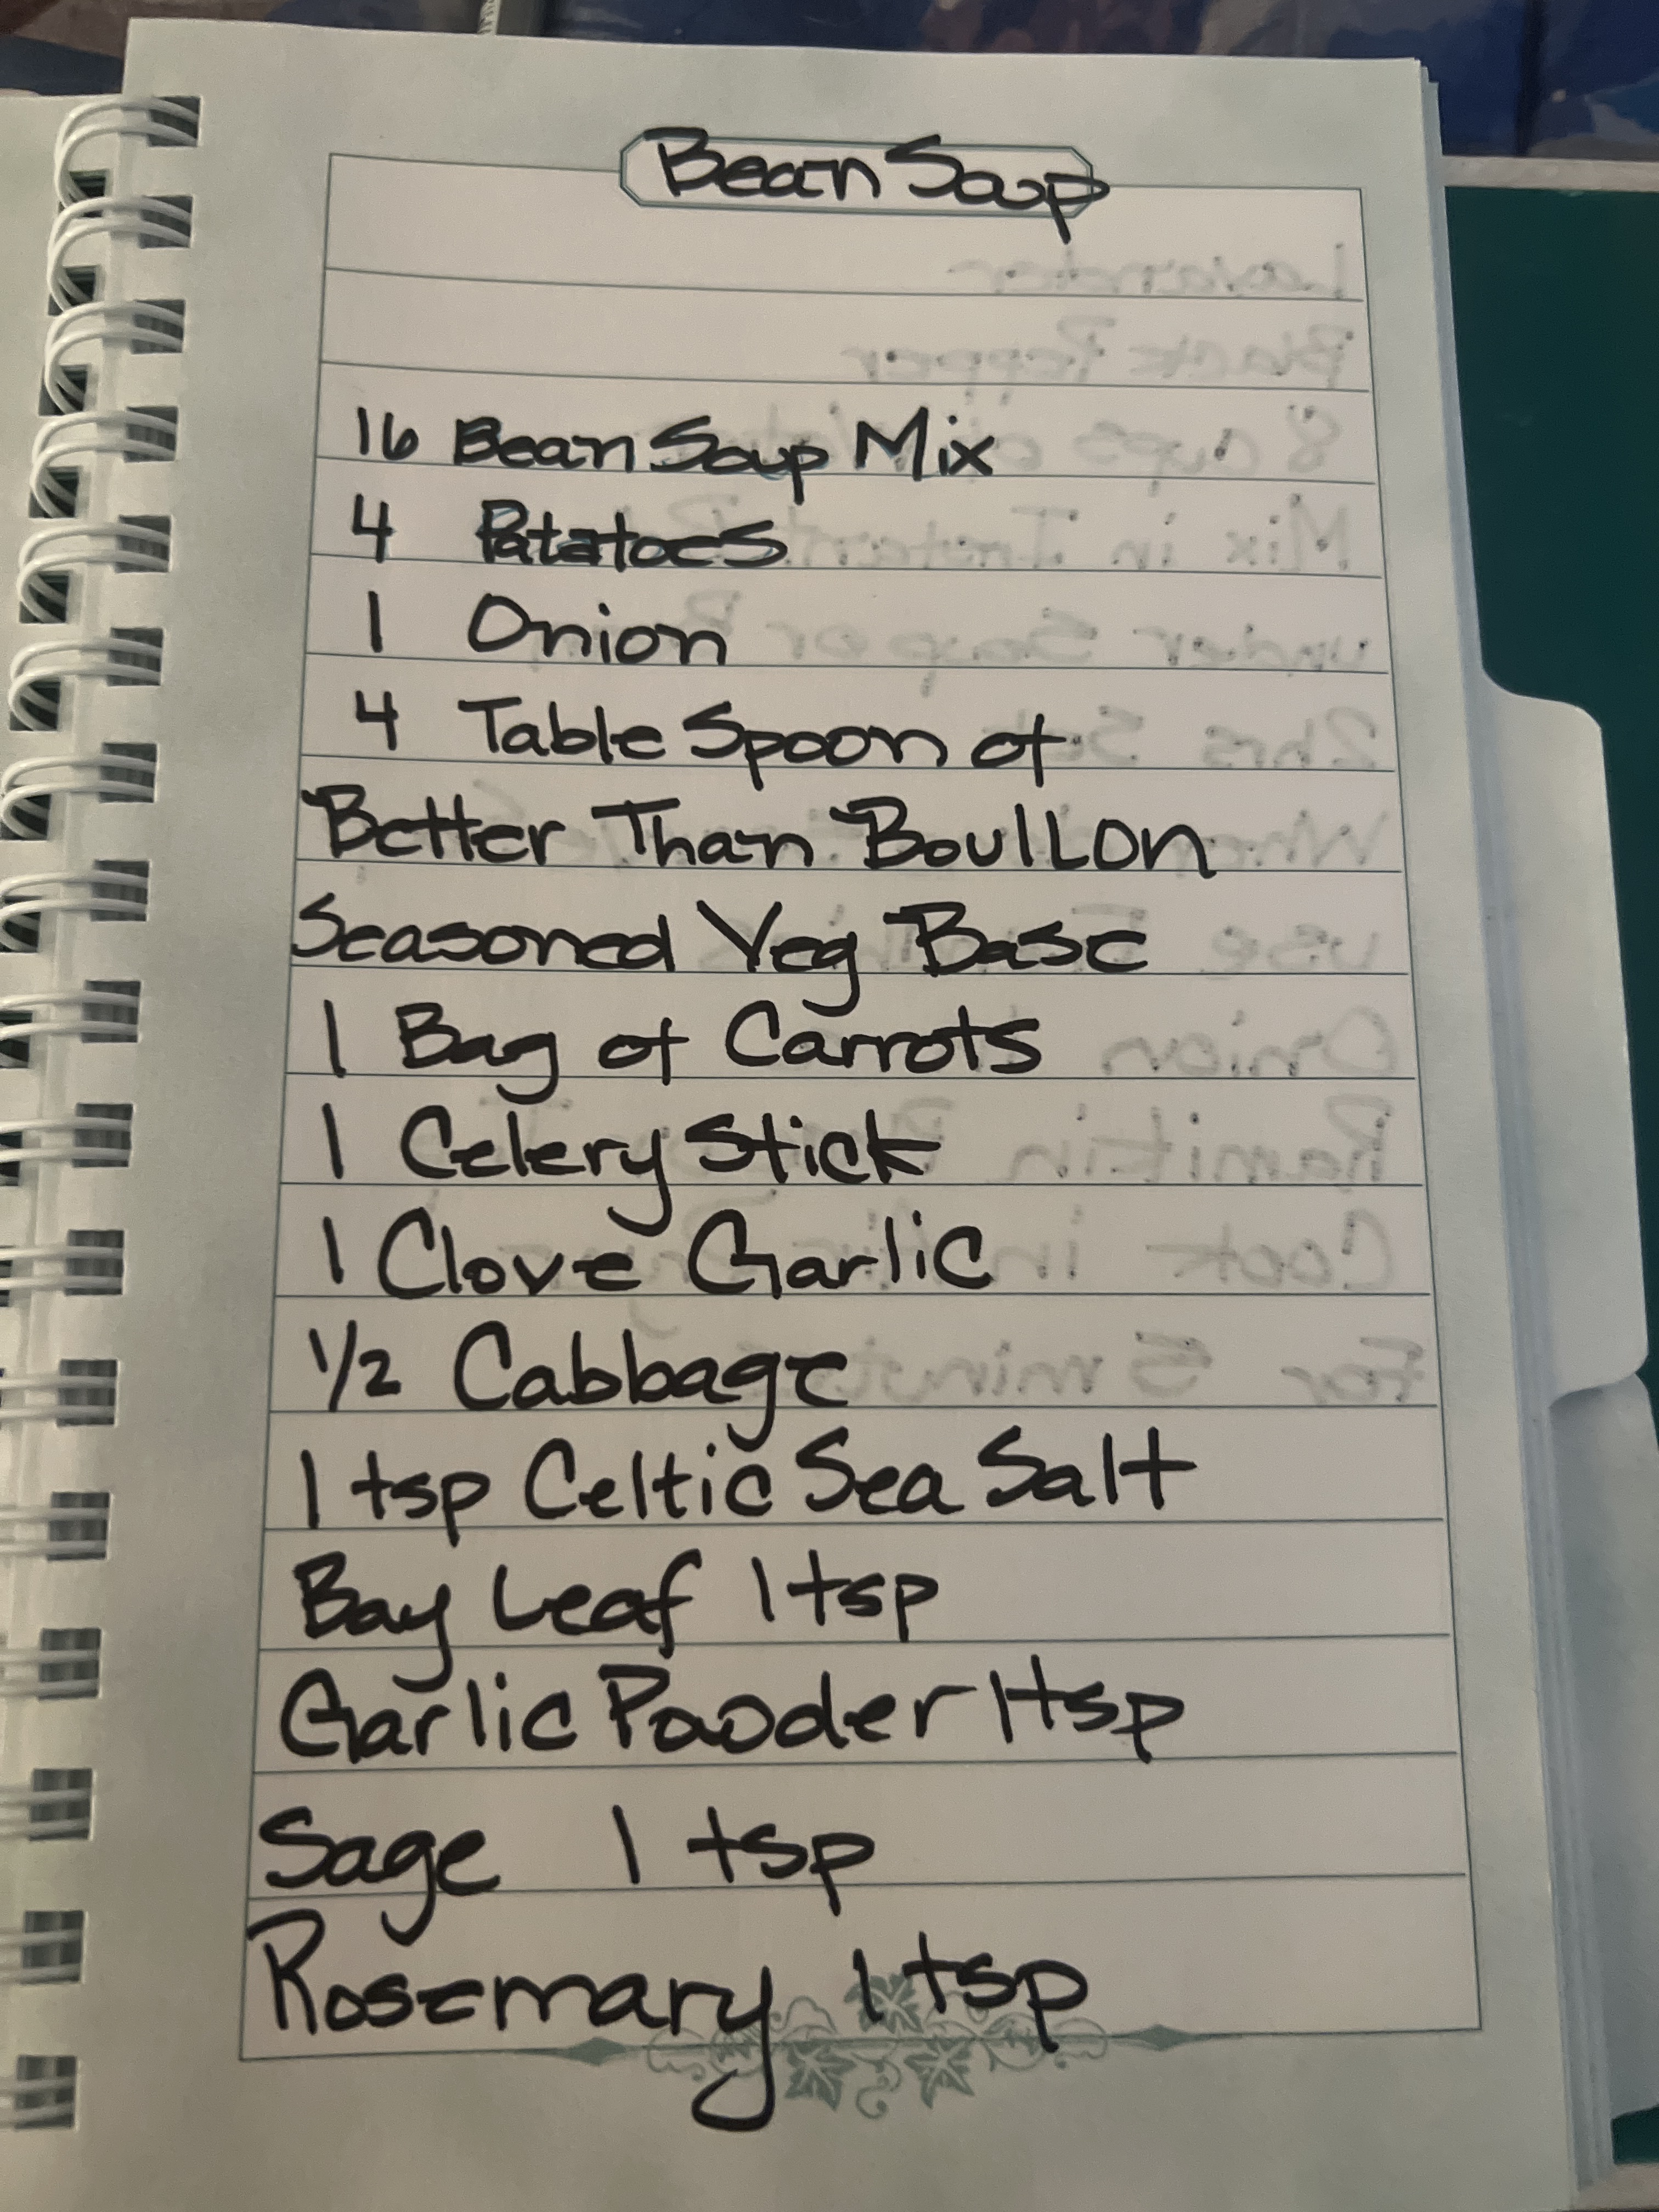 Bean Soup
16 Bean Soup Mix
4 Patatoes
1 Onion
4 Table Spoon of
Better Than Boullon
Seasoned Veg Base
1 Bag of Carrots
1 Celery Stick
1 Clove Garlic
1/2 Cabbage
1 tsp Celtic Sea Salt
Bay Leaf 1 tsp
Garlic Paoder 1 tsp
Sage 1 tsp
Rosemary 1 tsp